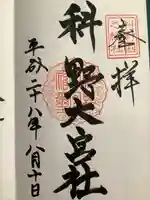 奉拝
科野大宮社
平成二十八年八月十日